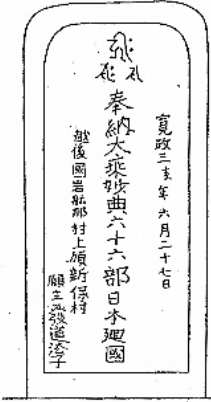 寛政三亥年六月二十七日
奉納大乘妙典六十六部日本廻國
越後國岩舩郡村上領新保村
願主